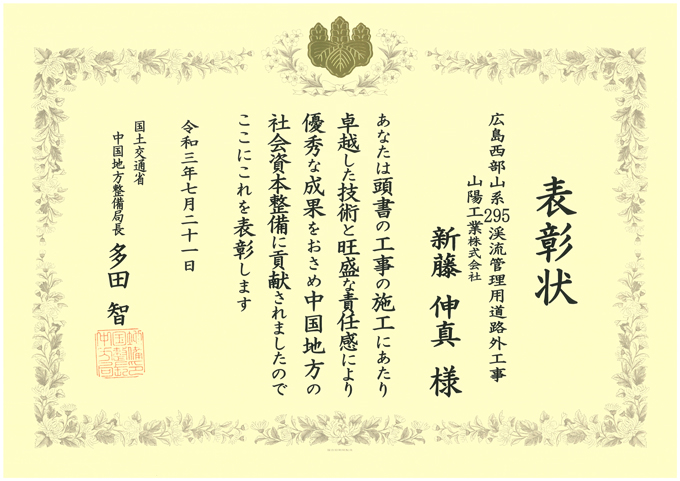 表彰状
広島西部山系295渓流管理用道路外工事
山陽工業株式会社
新藤 伸真 様
あなたは頭書の工事の施工にあたり
卓越した技術と旺盛な責任感により
優秀な成果をおさめ中国地方の
社会資本整備に貢献されましたので
ここにこれを表彰します
令和三年七月二十一日
国土交通省
中国地方整備局長 多田 智